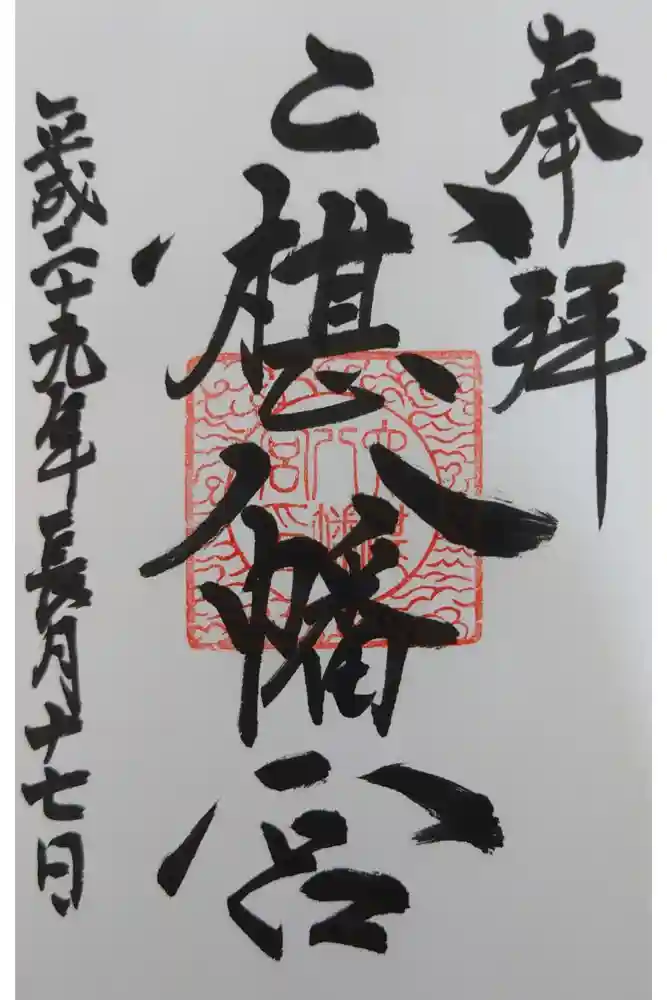 奉拝
六椹八幡宮
平成二十九年長月十七日